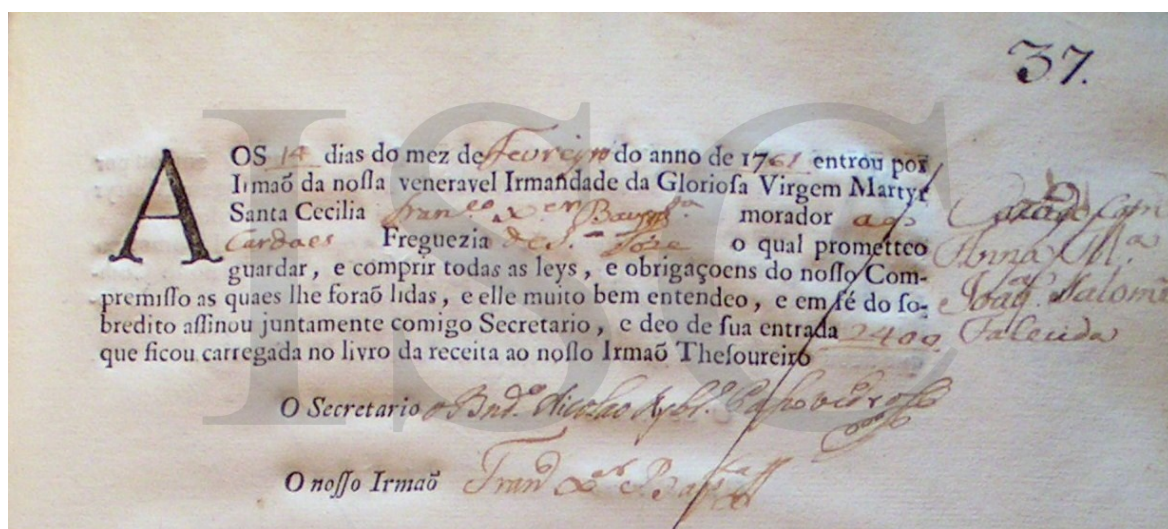 37.
AOS 14 dias do mez de Fevreyro do anno de 1761 entrou por
Irmaõ da noſſa veneravel Irmandade da Glorioſa Virgem Martyr
Santa Cecilia Fran.co X.er Baup.ta morador aos
Cardaes Freguezia de S. Joze o qual prometteo
guardar, e comprir todas as leys, e obrigaçoens do noſſo Com-
premiſſo as quaes lhe foraõ lidas, e elle muito bem entendeo, e em fé do ſo-
bredito aſſinou juntamente comigo Secretario, e deo de ſua entrada 2400
que ficou carregada no livro da receita ao noſſo Irmaõ Theſoureiro
Cazado com
Anna M.a
Joaq. Salomé
Falecida
O Secretario Nicolao
O noſſo Irmaõ Fran.co X.er
ISC